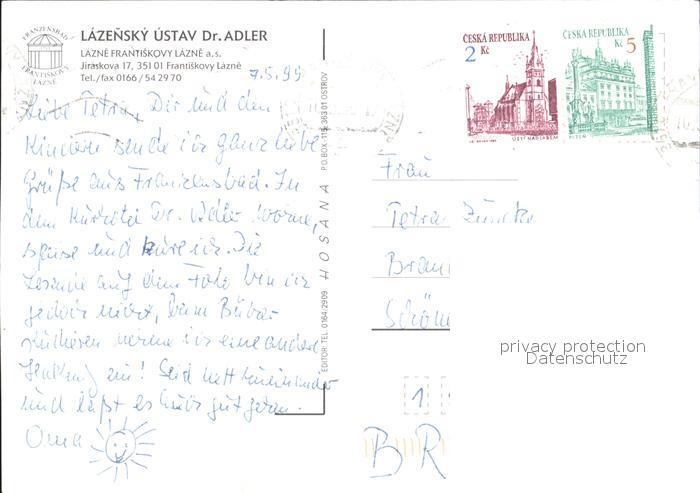 FRANZENSBAD
FRANTIŠKOVY
LÁZNĚ
LÁZEŇSKÝ ÚSTAV Dr. ADLER
LÁZNĚ FRANTIŠKOVY LÁZNĚ a.s.
Jiráskova 17, 351 01 Františkovy Lázně
Tel./fax 0166 / 54 29 70
7.5.99
Liebe Petra, Dir und den
Kindern sende ich ganz liebe
Grüße aus Franzensbad. In
dem Kurhotel Dr. Adler wohne,
speise und kure ich. Die
Lesende auf dem Foto bin ich
jedoch nicht, beim Bücher
studieren nehme ich eine andere
Haltung ein! Seid nett zueinander
und laßt es Euch gut gehen.
Oma
EDITOR: TEL. 0164/2909 HOSANA P.O.BOX 115, 363 01 OSTROV
ČESKÁ REPUBLIKA
2 Kč
ÚSTÍ NAD LABEM
ČESKÁ REPUBLIKA
Kč 5
PLZEŇ
Frau
Petra
Bran
Schön
privacy protection
Datenschutz
1
BR